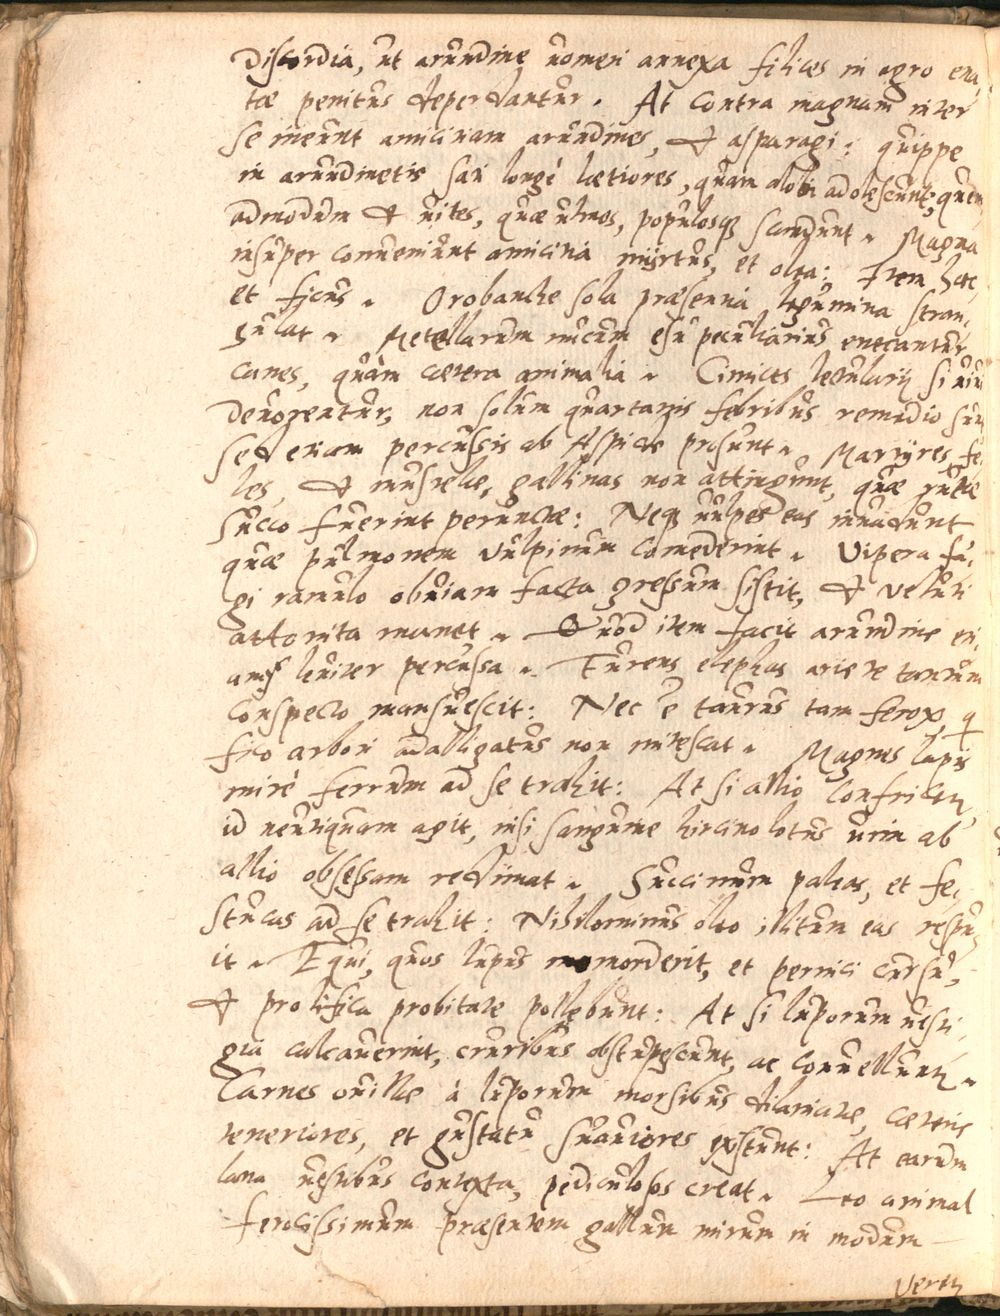 discordia, ut arundine vomeri annexa filices in agro ena,
tæ penitus deperdantur. At contra magnam inter
se ineunt amicitiam arundines, & asparagi: quippe
in arundinetis sati longé lætiores, quam alobi adolescunt, quem,
admodum & vites, quæ ulmos, populosq; scandunt. Magna
insuper conveniunt amicitia myrtus, et olea; Item hæc,
et ficus. Orobanche sola præsentia legumina stran,
gulat. Metellarum nucum esu peculiarius enecantur
canes, quàm cætera animalia. Cimices lectularij si vivi
devorentur, non solum quartanis febribus remedio sunt
sed etiam percussis ab Aspide prosunt. Martyres, fe,
les, & mustelæ, gallinas non attingunt, quæ rutæ
succo fuerint perunctæ: Neq; vulpes eas invadunt
quæ pulmonem vulpinum comederint. Vipera fa,
gi ramulo obviam facta gressum sistit, & veluti
attonita manet. Quod item facit arundine eti,
amsi leviter percussa. Furens elephas ariete tantum
conspecto mansuescit: Nec ē taurus tam ferox, q
fico arbori adalligatus non mitescat. Magnes lapis
miré ferrum ad se trahit: At si allio confricatz
id neutiquam agit, nisi sanguine hircino lotus vim ab
allio obsessam redimat. Succinum paleas, et fe,
stucas ad se trahit: Nihilominus oleo illitum eas respu,
it. Equi, quos lupus momorderit, et pernici cursu,
& prolifica probitate pollebunt: At si luporum vesti,
gia calcaverint, cruribus obstupescunt, ac convelluntz.
Carnes ovillæ à luporum morsibus dilaniatæ, cæteris
teneriores, et gustatu suaviores existunt: At earum
lana vestibus contexta, pediculosos creat. Leo animal
ferocissimum præsentem gallum mirum in modum
veretz